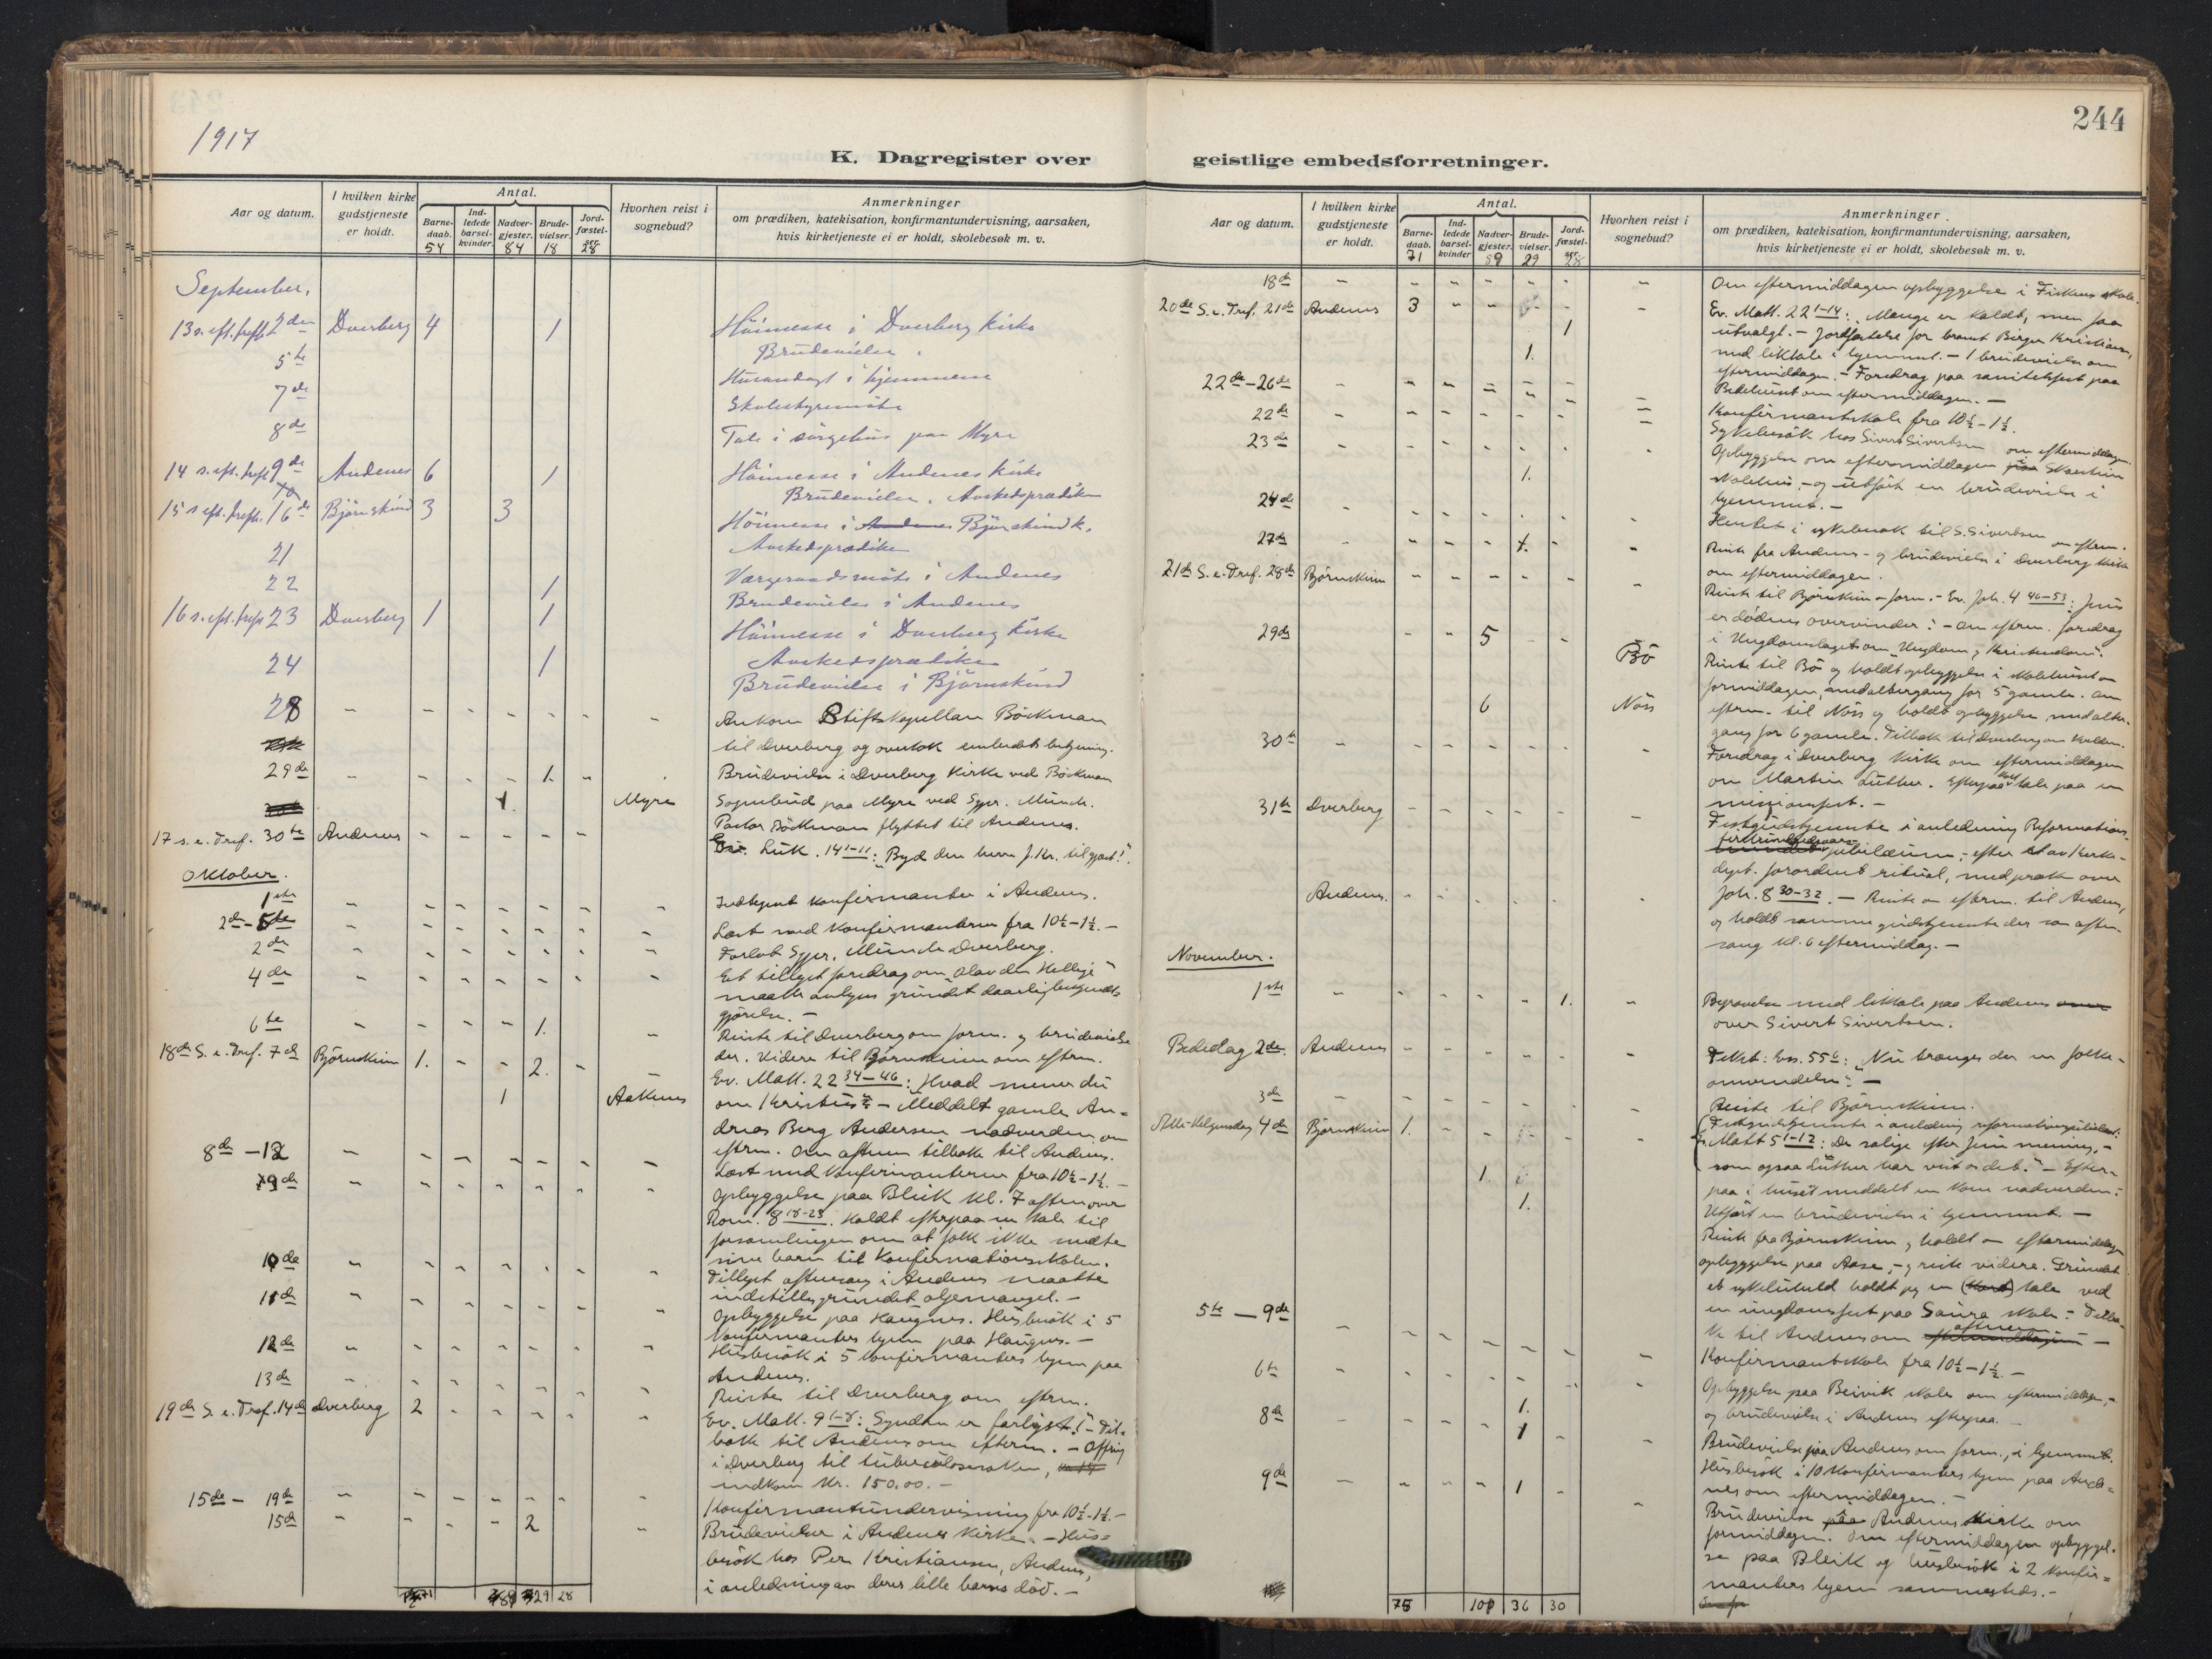 244
1917
K. Dagregister over geistlige embedsforretninger.
Aar og datum.
I hvilken kirke gudstjeneste er holdt.
Antal.
Barne-daab. 54
Ind-ledede barsel-kvinder.
Nadver-gjester. 84
Brude-vielser. 18
Jord-fæstel-ser. 28
Hvorhen reist i sognebud?
Anmerkninger
om prædiken, katekisation, konfirmantundervisning, aarsaken,
hvis kirketjeneste ei er holdt, skolebesøk m. v.
September.
13 s. eft. trefh. 2den Dverberg 4 1 Höimesse i Dverberg kirke
Brudevielse.
5te Husandagt i hjemmene
7de Skolestyremöte
8de Tale i sörgehus paa Myre
14 s. eft. trefh. 9de Andenes 6 1 Höimesse i Andenes kirke
Brudevielse. Avskedsprædiken
15 s. eft. trefh. 16de Björnskind 3 3 Höimesse i Andenes Björnskind k.
Avskedsprædiken
21 Værgeraadsmöte i Andenes
22 1 Brudevielse i Andenes
16 s. eft. trefh. 23 Dverberg 1 1 Höimesse i Dverberg kirke
Avskedsprædiken
24 1 Brudevielse i Björnskind
28 Ankom Stiftskapellan Böckman
til Dverberg og overtok embedets betjening.
29de 1. Brudevielse i Dverberg kirke ved Böckman
1. Myre Sognebud paa Myre ved Sgpr. Münch.
Pastor Böckman flyttet til Andenes.
17 s. e. Tref. 30te Andenes Ev. Luk. 14 1-11: "Byd den herre J. Kr. til gjest!".
Oktober.
1ste Indtegnet konfirmanter i Andenes.
2den-5te Læst med konfirmanterne fra 10½-1½.
2den Forlot Sgpr. Münch Dverberg.
4de Et tillyst foredrag om "Olav den Hellige"
maatte avlyses grundet daarlig bekjendt-
gjørelse.
6te 1. Reiste til Dverberg om form. og brudevielse
der. Videre til Bjørnskinn om eftm.
18de S. e. Tref. 7de Björnskinn 1. 2. Ev. Matt. 22 34-46: Hvad mener du
1 Aaknes om Kristus? - Meddelt gamle An-
dreas Berg Andersen nadverden om
eftm. Om aftenen tilbake til Andenes.
8de - 12 Læst med konfirmanterne fra 10½-1½.
9de Opbyggelse paa Bleik kl. 7 aften over
Rom. 8 18-23. Holdt efterpaa en tale til
forsamlingen om at folk ikke møtte
sine barn til konfirmationsskolen.
10de Tillyst aftensang i Andenes maatte
indstilles grundet oljemangel.
11de Opbyggelse paa Haugnes. Husbesök i 5
konfirmanters hjem paa Haugnes.
12de Husbesök i 5 konfirmanters hjem paa
Andenes.
13de Reiste til Dverberg om eftm.
19de S. e. Tref. 14de Dverberg 2 Ev. Matt. 9 1-8: "Synden er farligst!" - Til-
bake til Andenes om efterm. - Offring
i Dverberg til tuberculosesaken,
indkom kr. 150.00.
15de - 19de Konfirmantundervisning fra 10½-1½.
15de 2 Brudevielser i Andenes kirke. - Hus-
besök hos Per Kristiansen, Andenes,
i anledning av deres lille barns död.
71 89 29 28
Aar og datum.
I hvilken kirke gudstjeneste er holdt.
Antal.
Barne-daab. 71
Ind-ledede barsel-kvinder
Nadver-gjester. 89
Brude-vielser. 29
Jord-fæstel-ser. 28
Hvorhen reist i sognebud?
Anmerkninger
om prædiken, katekisation, konfirmantundervisning, aarsaken,
hvis kirketjeneste ei er holdt, skolebesøk m. v.
18de Om eftermiddagen opbyggelse i Fiskenes skole.
20de S. e. Tref. 21de Andenes 3 Ev. Matt. 22 1-14: Mange er kaldt, men faa
1 utvalgt. - Jordfæstelse for barnet Birger Kristiansen,
1. med liktale i hjemmet. - 1 brudevielse om
eftermiddagen. - Foredrag paa sanitetsfest paa
Bedehuset om eftermiddagen.
22de - 26de Konfirmantskole fra 10½-1½.
22de Sykebesök hos Sivert Sivertsen om eftermiddagen.
23de Opbyggelse om eftermiddagen paa
1. skolehus, - og utført en brudevielse i
hjemmet.
24de Hentet i sykebesøk til S. Sivertsen om eftm.
27de 1. Reiste fra Andenes - og brudevielse i Dverberg kirke
om eftermiddagen.
21de S. e. Tref. 28de Björnskinn Reiste til Bjørnskinn om form. - Ev. Joh. 4 46-53: "Jesus
er dødens overvinder". - Om eftm. foredrag
i Ungdomslaget om "Ungdom og Kristendom".
29de 5 Bö Reiste til Bö og holdt opbyggelse i skolehuset om
formiddagen, med altergang for 5 gamle. Om
6 Nöss eftm. til Nöss og holdt opbyggelse med alter-
gang for 6 gamle. Tilbake til Dverberg om kvelden.
30te Foredrag i Dverberg kirke om eftermiddagen
om Martin Luther. Efterpaa holdt tale paa en
missionsfest.
31te Dverberg Festgudstjeneste i anledning Reformations-
jubilæum, - efter et av Kirke-
dept. forordnet ritual, med præk over
Joh. 8 30-32. - Reiste om eftm. til Andenes,
Andenes og holdt samme gudstjeneste der som aften-
sang kl. 6 eftermiddag.
November.
1ste 1. Begravelse med liktale paa Andenes
over Sivert Sivertsen.
Bededag 2den. Andenes Tekst: Ess. 55 6: "Nu trænges der en folke-
omvendelse".
3de Reiste til Björnskinn.
Alle-Helgensdag 4de Bjørnskinn 1. Festgudstjeneste i anledning reformationsjubilæet:
Matt 5 1-12: De salige efter Jesu mening, -
som ogsaa Luther har vist os det." - Efter-
1. paa i huset meddelt en kone nadverden.
1. Utført en brudevielse i hjemmet.
Reiste fra Bjørnskinn og holdt om eftermiddagen
opbyggelse paa Aase, - og reiste videre. Grundet
et sykelikuheld holdt jeg en (kort) tale ved
en ungdomsfest paa Saura skole. - Tilba-
ke til Andenes om aftenen
5te - 9de Konfirmantskole fra 10½-1½.
6te Opbyggelse paa Breivik skole om eftermiddagen,
1. og brudevielse i Andenes efterpaa.
8de 1 Brudevielse paa Andenes om form., i hjemmet.
Husbesøk i 10 konfirmanters hjem paa Ande-
nes om eftermiddagen.
9de 1 Brudevielse paa Andenes kirke om
formiddagen. Om eftermiddagen opbyggel-
se paa Bleik og husbesøk i 2 konfir-
manters hjem sammesteds.
75 100 36 30